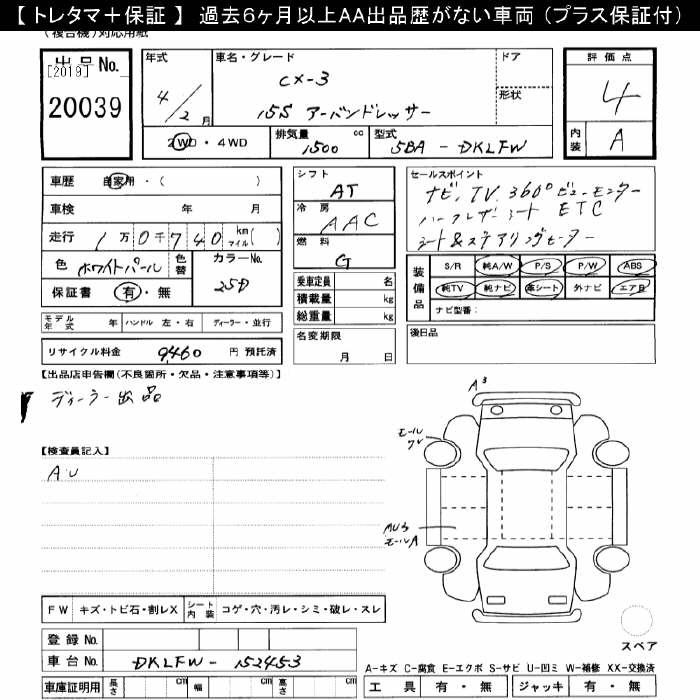 【 トレタマ＋保証 】 過去６ヶ月以上ＡＡ出品歴がない車両（プラス保証付）
(複合機)対応用紙
出品No.
[2019]
20039
年式
4/2月
車名・グレード
CX-3
15S アーバンドレッサー
ドア
形状
評価点
4
内装 A
2WD・4WD
排気量 1500 cc
型式 5BA - DKLFW
車歴 自家用・( )
車検 年 月
走行 1万0千740 km マイル( )
色 ホワイトパール 色替 カラーNo. 25D
保証書 有・無
シフト AT
冷房 AAC
燃料 G
乗車定員 名
積載量 kg
総重量 kg
セールスポイント
ナビ,TV.360°ビューモニター
ハーフレザーシート ETC
シート&ステアリングヒーター
装備品
S/R 純A/W P/S P/W ABS
純TV 純ナビ 革シート 外ナビ エアB
ナビ型番：
モデル年式 年 ハンドル 左・右 ディーラー・並行
リサイクル料金 9,460 円 預託済
名変期限
月 日
後日品
【出品店申告欄(不良箇所・欠品・注意事項等)】
ディーラー出品
【検査員記入】
AU
A3
モールワレ
AU3
モールA
FW キズ・トビ石・割レX シート内装 コゲ・穴・汚レ・シミ・破レ・スレ
登録 No.
車台 No. DKLFW - 152453
車庫証明用 長さ cm 幅 cm 高さ cm
スペア
A-キズ C-腐食 E-エクボ S-サビ U-凹ミ W-補修 XX-交換済
工具 有・無 ジャッキ 有・無